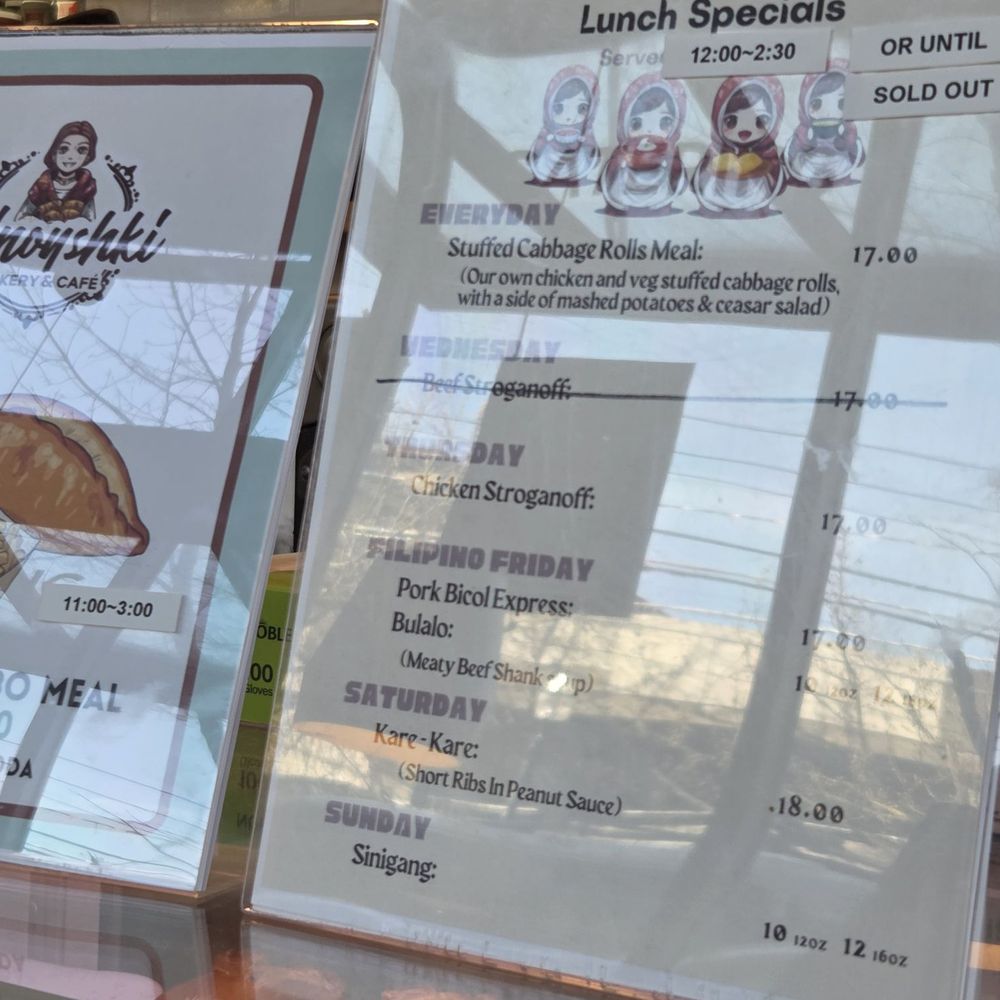 noyshki
KERY & CAFÉ
11:00~3:00
BO MEAL
0
DA
ÖBLE
00
Gloves
Lunch Specials
Served 12:00~2:30 OR UNTIL
SOLD OUT
EVERYDAY
Stuffed Cabbage Rolls Meal: 17.00
(Our own chicken and veg stuffed cabbage rolls,
with a side of mashed potatoes & ceasar salad)
WEDNESDAY
Beef Stroganoff: 17.00
THURSDAY
Chicken Stroganoff: 17.00
FILIPINO FRIDAY
Pork Bicol Express: 17.00
Bulalo: 10 12oz 12 16oz
(Meaty Beef Shank soup)
SATURDAY
Kare-Kare: .18.00
(Short Ribs In Peanut Sauce)
SUNDAY
Sinigang: 10 12oz 12 16oz